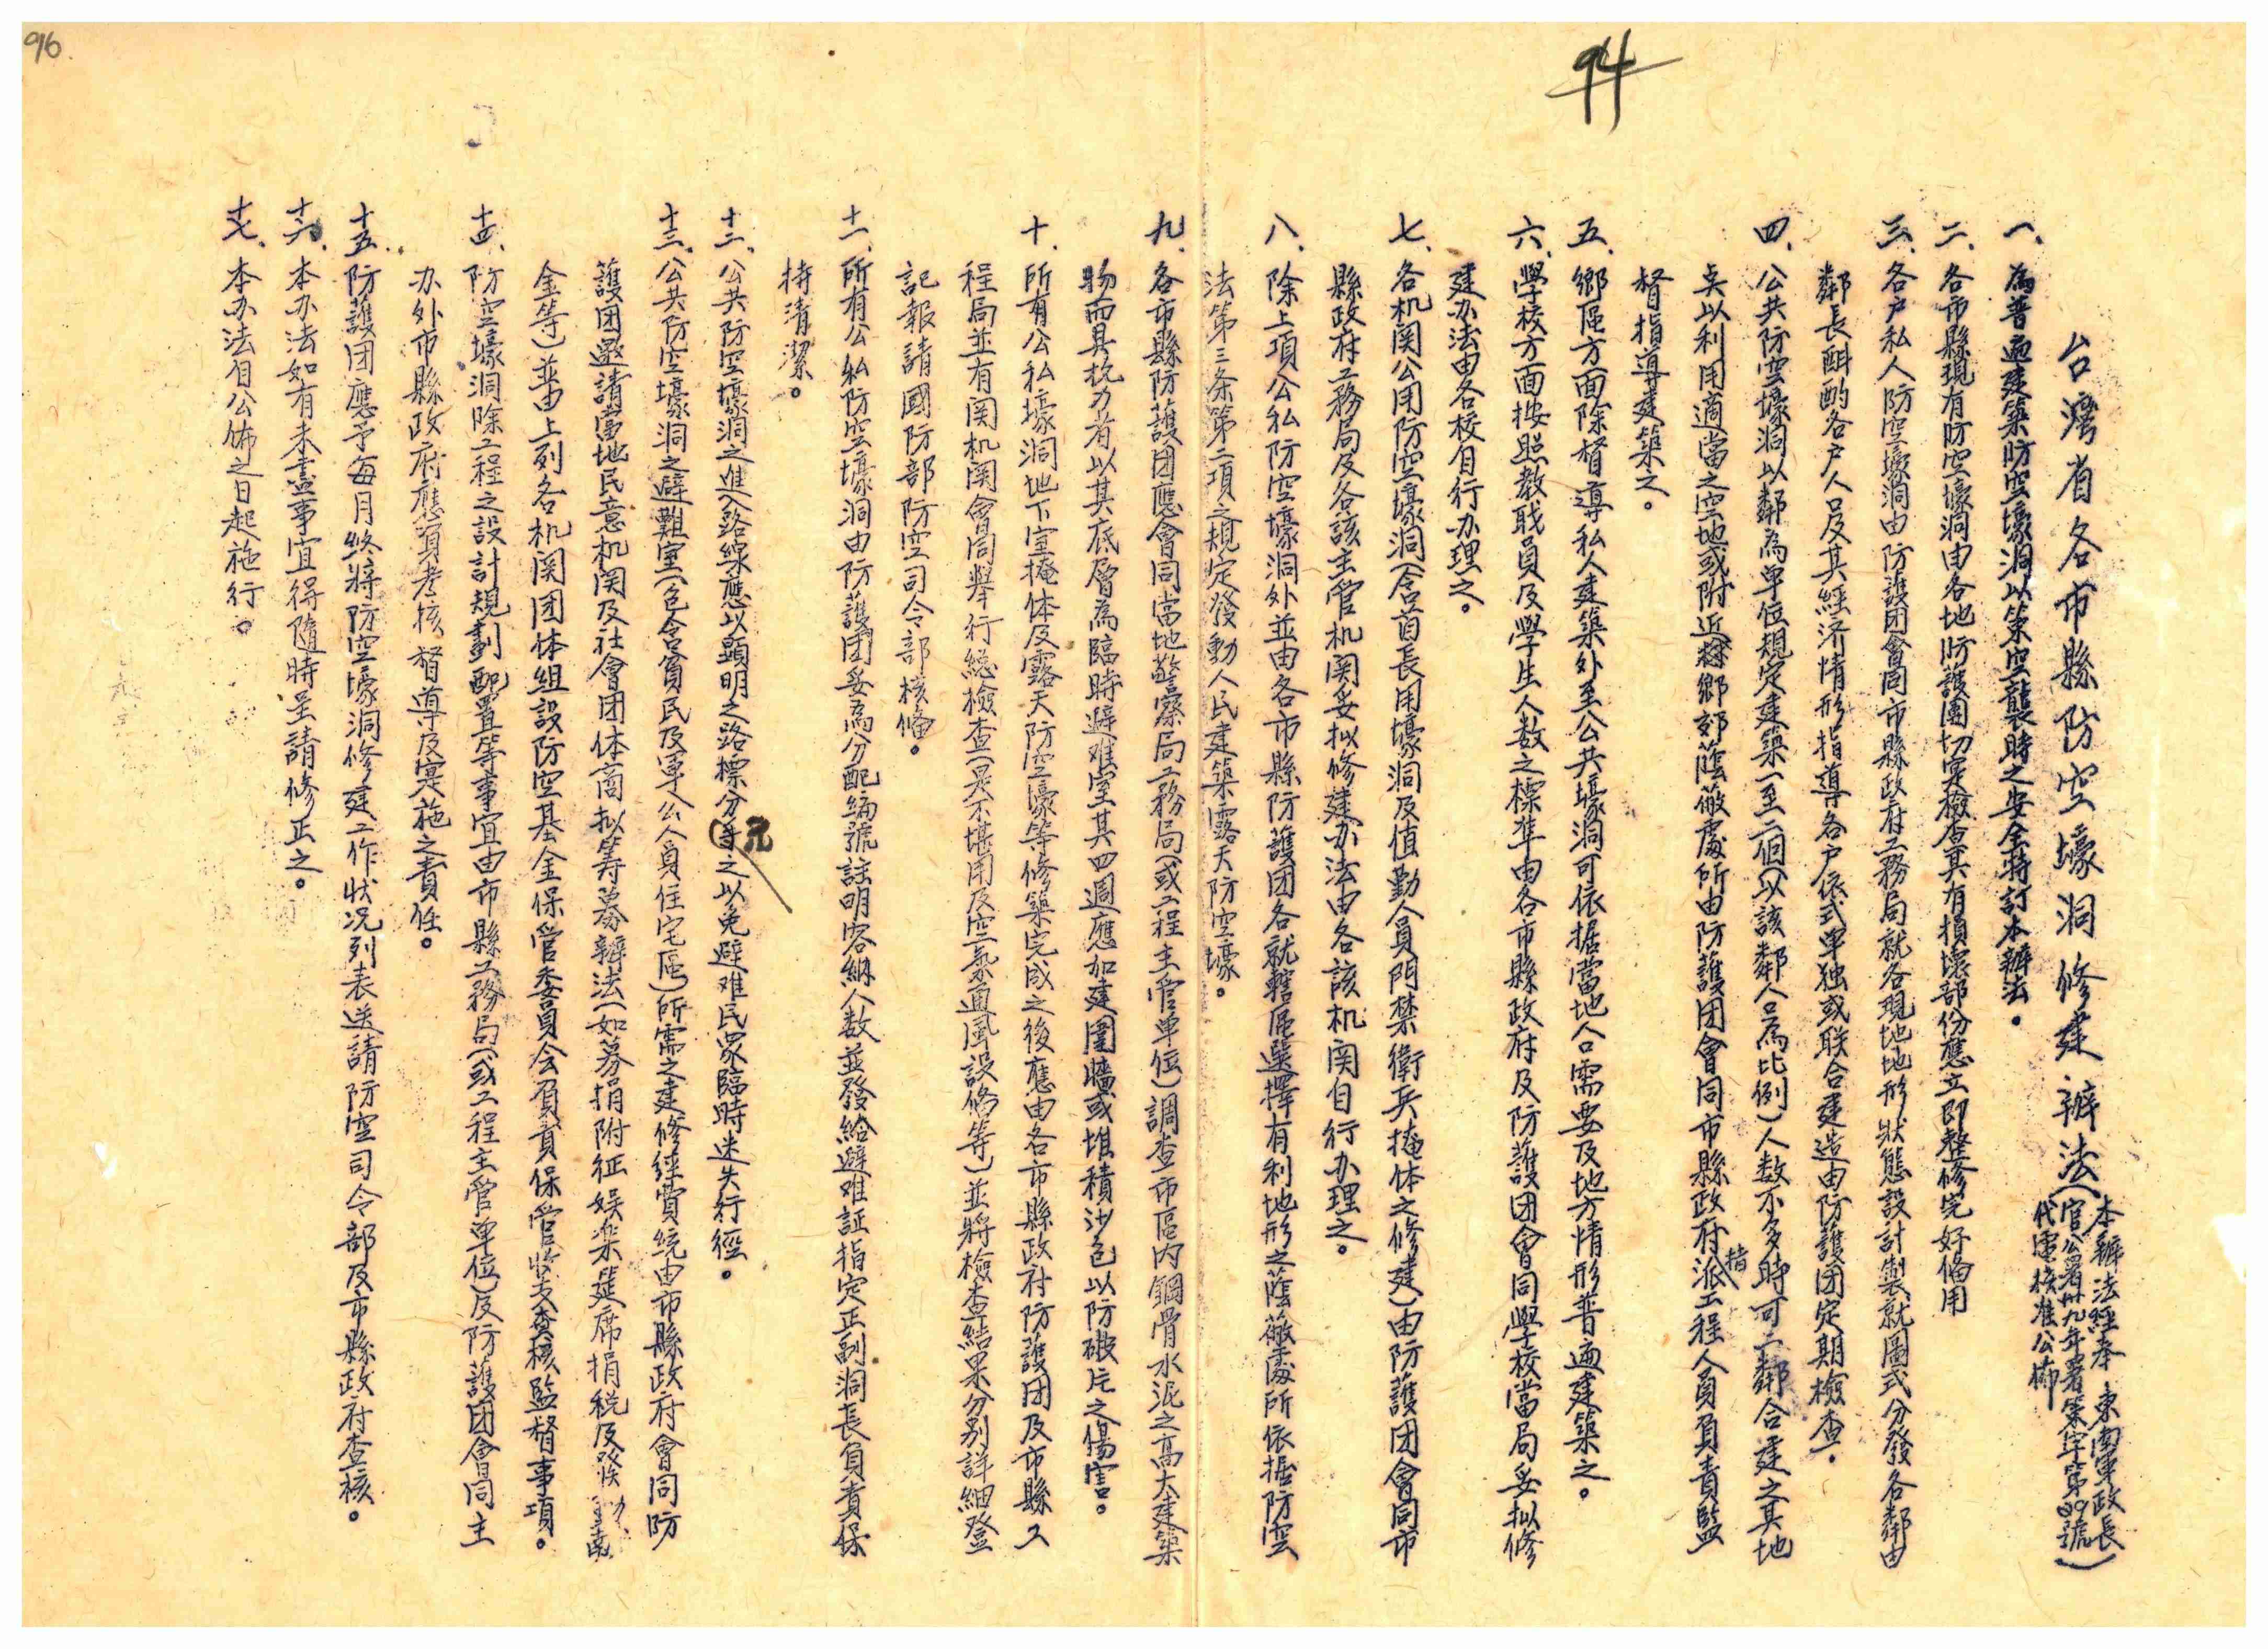 96.
94
台灣省各市縣防空壕洞修建辦法(本辦法經奉東南軍政長
官公署卅九年署策字第89號
代電核准公佈)
一、為普遍建築防空壕洞以策空襲時之安全特訂本辦法。
二、各市縣現有防空壕洞由各地防護團切实檢查其有損壞部份應立即整修完好俻用
三、各户私人防空壕洞由防護团會同市縣政府工務局就各現地地形狀態設計製就圖式分發各鄰由
鄰長酙酌各户人口及其經济情形指導各户依式单独或联合建造由防護团定期檢查。
四、公共防空壕洞以鄰為单位規定建築一至二個(以該鄰人口為比例)人数不多時可二鄰合建之其地
点以利用適當之空地或附近鄉郊蔭蔽處所由防護团會同市縣政府指派工程人員負責監
督指導建築之。
五、鄉區方面除督導私人建築外至公共壕洞可依据當地人口需要及地方情形普遍建築之。
六、學校方面按照教职員及學生人数之標準由各市縣政府及防護团會同學校當局妥拟修
建办法由各校自行办理之。
七、各机関公用防空壕洞(含首長用壕洞及值勤人員門禁衛兵掩体之修建)由防護团會同市
縣政府工務局及各該主管机関妥拟修建办法由各該机関自行办理之。
八、除上項公私防空壕洞外並由各市縣防護团各就轄區選擇有利地形之蔭蔽處所依据防空
法第三条第二項之規定發動人民建築露天防空壕。
九、各市縣防護团應會同當地警察局工務局(或工程主管单位)調查市區内鋼骨水泥之高大建築
物而具抗力者以其底層為臨時避难室其四週應加建圍牆或堆積沙包以防破片之傷害。
十、所有公私壕洞地下室掩体及露天防空壕等修築完成之後應由各市縣政府防護团及市縣工
程局並有関机関會同舉行總檢查(是不堪用及空氣通風設俻等)並將檢查結果分别詳細登
記報請國防部防空司令部核俻。
十一、所有公私防空壕洞由防護团妥為分配編號註明容納人数並發給避难証指定正副洞長負責保
持清潔。
十二、公共防空壕洞之進入路線應以顕明之路標分导之以免避难民眾臨時迷失行徑。
十三、公共防空壕洞之避難室(包含貧民及軍公人員住宅區)所需之建修經費統由市縣政府會同防
護团邀請當地民意机関及社會团体商拟筹募辦法(如募捐附征娱楽筵席捐税及發動
金等)並由上列各机関团体組設防空基金保管委員会負責保管收支查核監督事項。
十四、防空壕洞除工程之設計規劃配置等事宜由市縣工務局(或工程主管单位)及防護团會同主
办外市縣政府應負考核督導及实施之責任。
十五、防護团應予每月終將防空壕洞修建工作狀况列表送請防空司令部及市縣政府查核。
十六、本办法如有未盡事宜得隨時呈請修正之。
十七、本办法自公佈之日起施行。